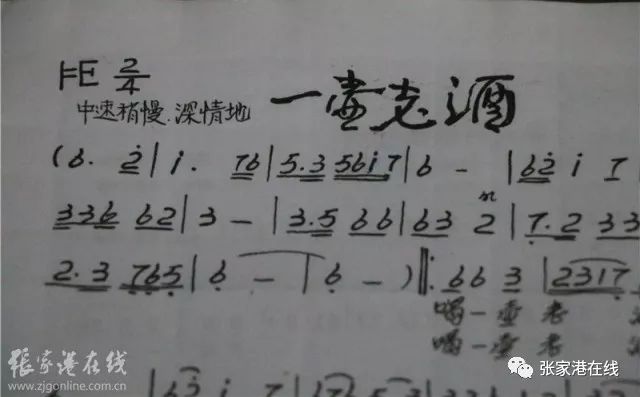 1=E 2/4
中速稍慢.深情地
一壶老酒
(6. 2̇ | i. 76 | 5.3 56i7 | 6 - | 62̇ i 7
336 62 | 3 - | 3.5 66 | 63 2 | 7.2 33
2.3 765 | 6 - | 6 - ) ‖: 66 3 | 2317
喝一壶老
喝一壶老
张家港在线
www.zjgonline.com.cn
张家港在线